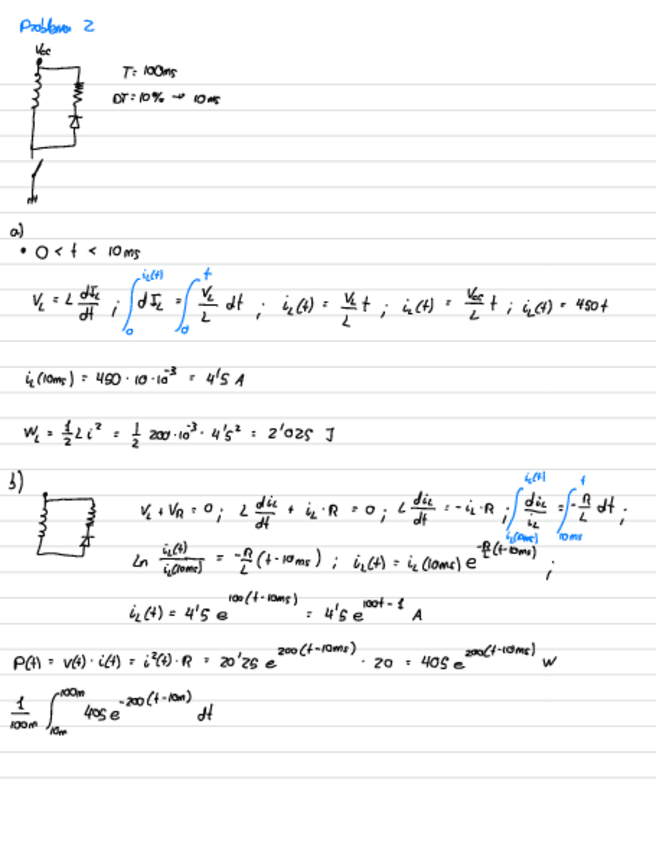 Problema 2
Vcc
T = 100ms
DT = 10% → 10 ms
a)
• 0 < t < 10 ms
V_L = L dI_L/dt ; ∫_0^{i_L(t)} dI_L = ∫_0^t V_L/L dt ; i_L(t) = V_L/L t ; i_L(t) = Vcc/L t ; i_L(t) = 450t
i_L(10ms) = 450 · 10 · 10^{-3} = 4'5 A
W_L = 1/2 L i^2 = 1/2 200·10^{-3} · 4'5^2 = 2'025 J
b)
V_L + V_R = 0 ; L di_L/dt + i_L · R = 0 ; L di_L/dt = -i_L · R ; ∫_{i_L(10ms)}^{i_L(t)} di_L/i_L = ∫_{10ms}^t -R/L dt ;
Ln i_L(t)/i_L(10ms) = -R/L (t-10ms) ; i_L(t) = i_L(10ms) e^{-R/L(t-10ms)} ;
i_L(t) = 4'5 e^{100(t-10ms)} = 4'5 e^{100t-1} A
P(t) = v(t) · i(t) = i^2(t) · R = 20'25 e^{200(t-10ms)} · 20 = 405 e^{200(t-10ms)} W
1/100m ∫_{10m}^{100m} 405 e^{-200(t-10m)} dt